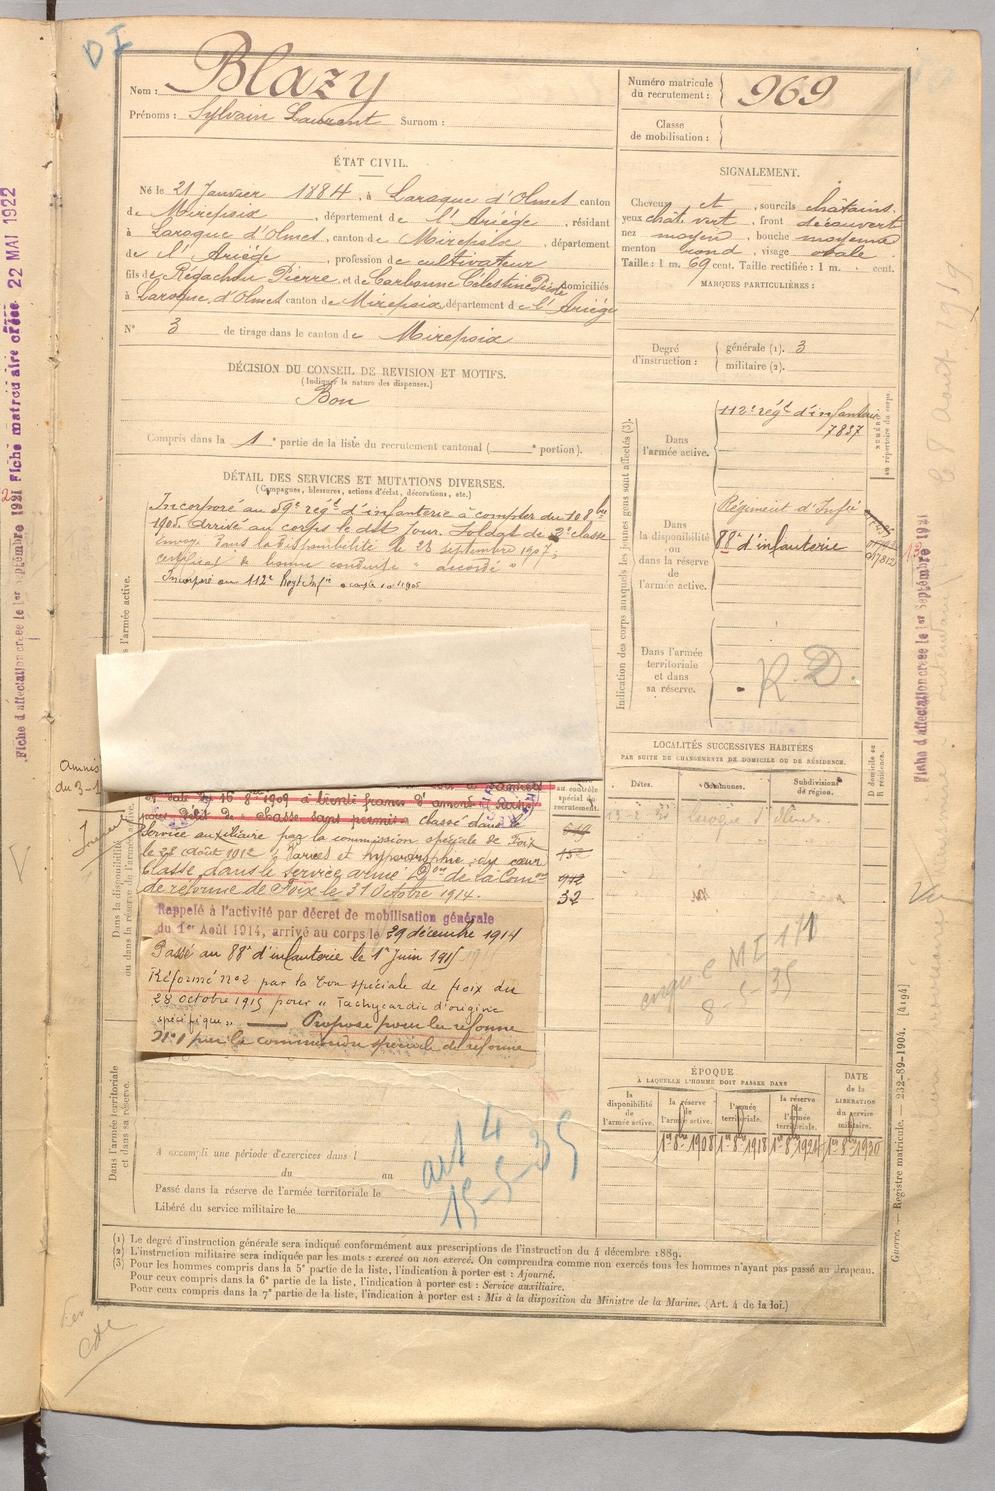 DI
Nom : Blazy
Prénoms : Sylvain Laurent Surnom :
Numéro matricule du recrutement : 969
Classe de mobilisation :
ÉTAT CIVIL.
Né le 21 Janvier 1884, à Laroque d'Olmes canton
de Mirepoix, département de l'Ariège, résidant
à Laroque d'Olmes, canton de Mirepoix, département
de l'Ariège, profession de cultivateur
fils de Régachou Pierre et de Carbonne Célestine domiciliés
à Laroque d'Olmes canton de Mirepoix département de l'Ariège
N° 3 de tirage dans le canton de Mirepoix
SIGNALEMENT.
Cheveux et, sourcils châtains
yeux chât. vert, front découvert
nez moyen, bouche moyenne
menton rond, visage ovale
Taille : 1 m. 69 cent. Taille rectifiée : 1 m. cent.
MARQUES PARTICULIÈRES :
Degré d'instruction :
générale (1). 3
militaire (2).
DÉCISION DU CONSEIL DE REVISION ET MOTIFS.
(Indiquer la nature des dispenses.)
Bon
Compris dans la 1e partie de la liste du recrutement cantonal ( e portion).
DÉTAIL DES SERVICES ET MUTATIONS DIVERSES.
(Campagnes, blessures, actions d'éclat, décorations, etc.)
Incorporé au 59e régt d'infanterie à compter du 10 8bre
1905. Arrivé au corps le dit jour. Soldat de 2e classe
Envoyé dans la disponibilité le 28 septembre 1907;
certificat de bonne conduite "accordé"
Incorporé au 112e Regt Infie
Indication des corps auxquels les jeunes gens sont affectés (3).
Dans l'armée active.
112e régt d'infanterie
7837
NUMÉRO au répertoire du corps.
Dans la disponibilité ou dans la réserve de l'armée active.
Régiment d'Infie
88e d'infanterie
Dans l'armée territoriale et dans sa réserve.
R.D.
LOCALITÉS SUCCESSIVES HABITÉES
PAR SUITE DE CHANGEMENTS DE DOMICILE OU DE RÉSIDENCE.
Dates. Communes. Subdivisions de région. D. domicile ou R. résidence.
au contrôle spécial du recrutement.
en date du 16 8bre 1909 à trente francs d'amende
pour délit de chasse sans permis classé dans le
Service auxiliaire par la commission spéciale de Foix
le 28 Août 1912 "Varices et hypertrophie du cœur
Classé dans le service armé Don de la Comon
de réforme de Foix le 31 Octobre 1914.
32
Rappelé à l'activité par décret de mobilisation générale
du 1er Août 1914, arrivé au corps le 29 décembre 1914
Passé au 88e d'infanterie le 1er Juin 1915
Réformé n°2 par la Con spéciale de Foix du
28 octobre 1915 pour "Tachycardie d'origine
spécifique" Proposé pour la réforme
N°1 par la commission spéciale de réforme
8-5-35
ÉPOQUE
À LAQUELLE L'HOMME DOIT PASSER DANS
la disponibilité de l'armée active.
la réserve de l'armée active.
l'armée territoriale.
la réserve de l'armée territoriale.
DATE de la LIBÉRATION du service militaire.
1er 8bre 1908 1er 8bre 1918 1er 8bre 1924 1er 8bre 1930
A accompli une période d'exercices dans l
du au
Passé dans la réserve de l'armée territoriale le
Libéré du service militaire le
art 4
15-5-35
Dans la disponibilité ou dans la réserve de l'armée active.
Dans l'armée territoriale et dans sa réserve.
(1) Le degré d'instruction générale sera indiqué conformément aux prescriptions de l'instruction du 4 décembre 1889.
(2) L'instruction militaire sera indiquée par les mots : exercé ou non exercé. On comprendra comme non exercés tous les hommes n'ayant pas passé au drapeau.
(3) Pour les hommes compris dans la 5e partie de la liste, l'indication à porter est : Ajourné.
Pour ceux compris dans la 6e partie de la liste, l'indication à porter est : Service auxiliaire.
Pour ceux compris dans la 7e partie de la liste, l'indication à porter est : Mis à la disposition du Ministre de la Marine. (Art. 4 de la loi.)
Guerre. — Registre matricule. — 232-89-1904. [4194]
Fiche d'affectation créée le 1er Septembre 1921
Fiche matriculaire créée 22 MAI 1922
Fiche d'affectation créée le 1er Septembre 1921